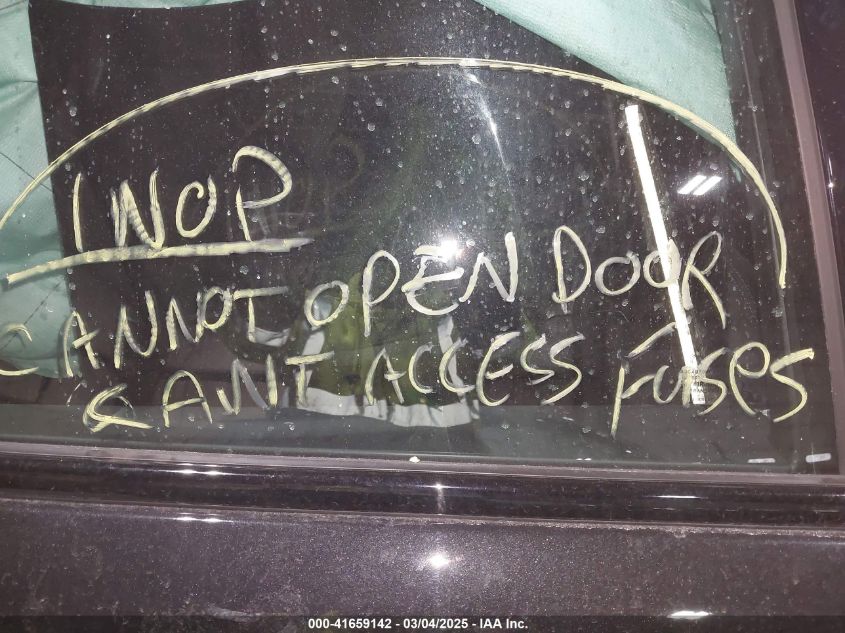 INOP
CANNOT OPEN DOOR
CANT ACCESS FUSES
000-41659142 - 03/04/2025 - IAA Inc.